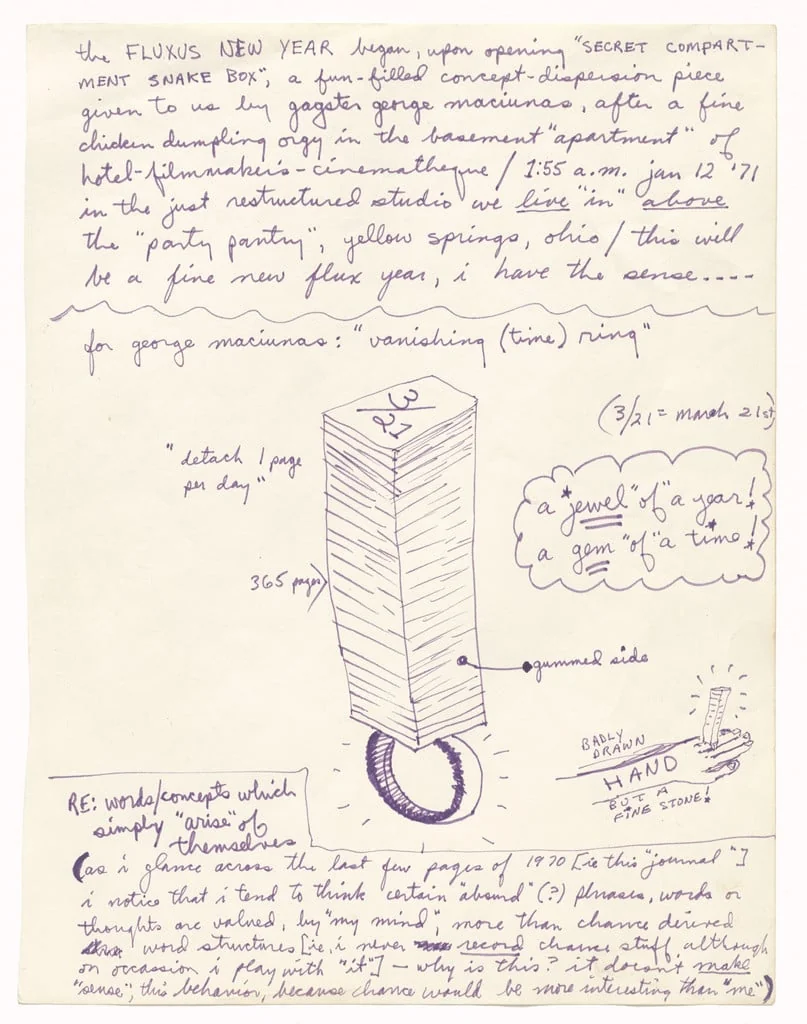 the FLUXUS NEW YEAR began, upon opening "SECRET COMPART-
MENT SNAKE BOX", a fun-filled concept-dispersion piece
given to us by gagster george maciunas, after a fine
chicken dumpling orgy in the basement "apartment" of
hotel-filmmaker's-cinematheque / 1:55 a.m. jan 12 '71
in the just restructured studio we live "in" above
the "party pantry", yellow springs, ohio / this will
be a fine new flux year, i have the sense....
for george maciunas: "vanishing (time) ring"
3/21
(3/21 = march 21st)
"detach 1 page
per day"
a *jewel "of" a year!
a gem "of" a time!
365 pages
gummed side
BADLY
DRAWN
HAND
BUT A
FINE STONE!
RE: words/concepts which
simply "arise" of
themselves
(as i glance across the last few pages of 1970 [ie this "journal"]
i notice that i tend to think certain "absurd" (?) phrases, words or
thoughts are valued, by "my mind", more than chance derived
word structures [ie, i never record chance stuff although
on occassion i play with "it"] – why is this? it doesn't make
"sense", this behavior, because chance would be more interesting than "me")